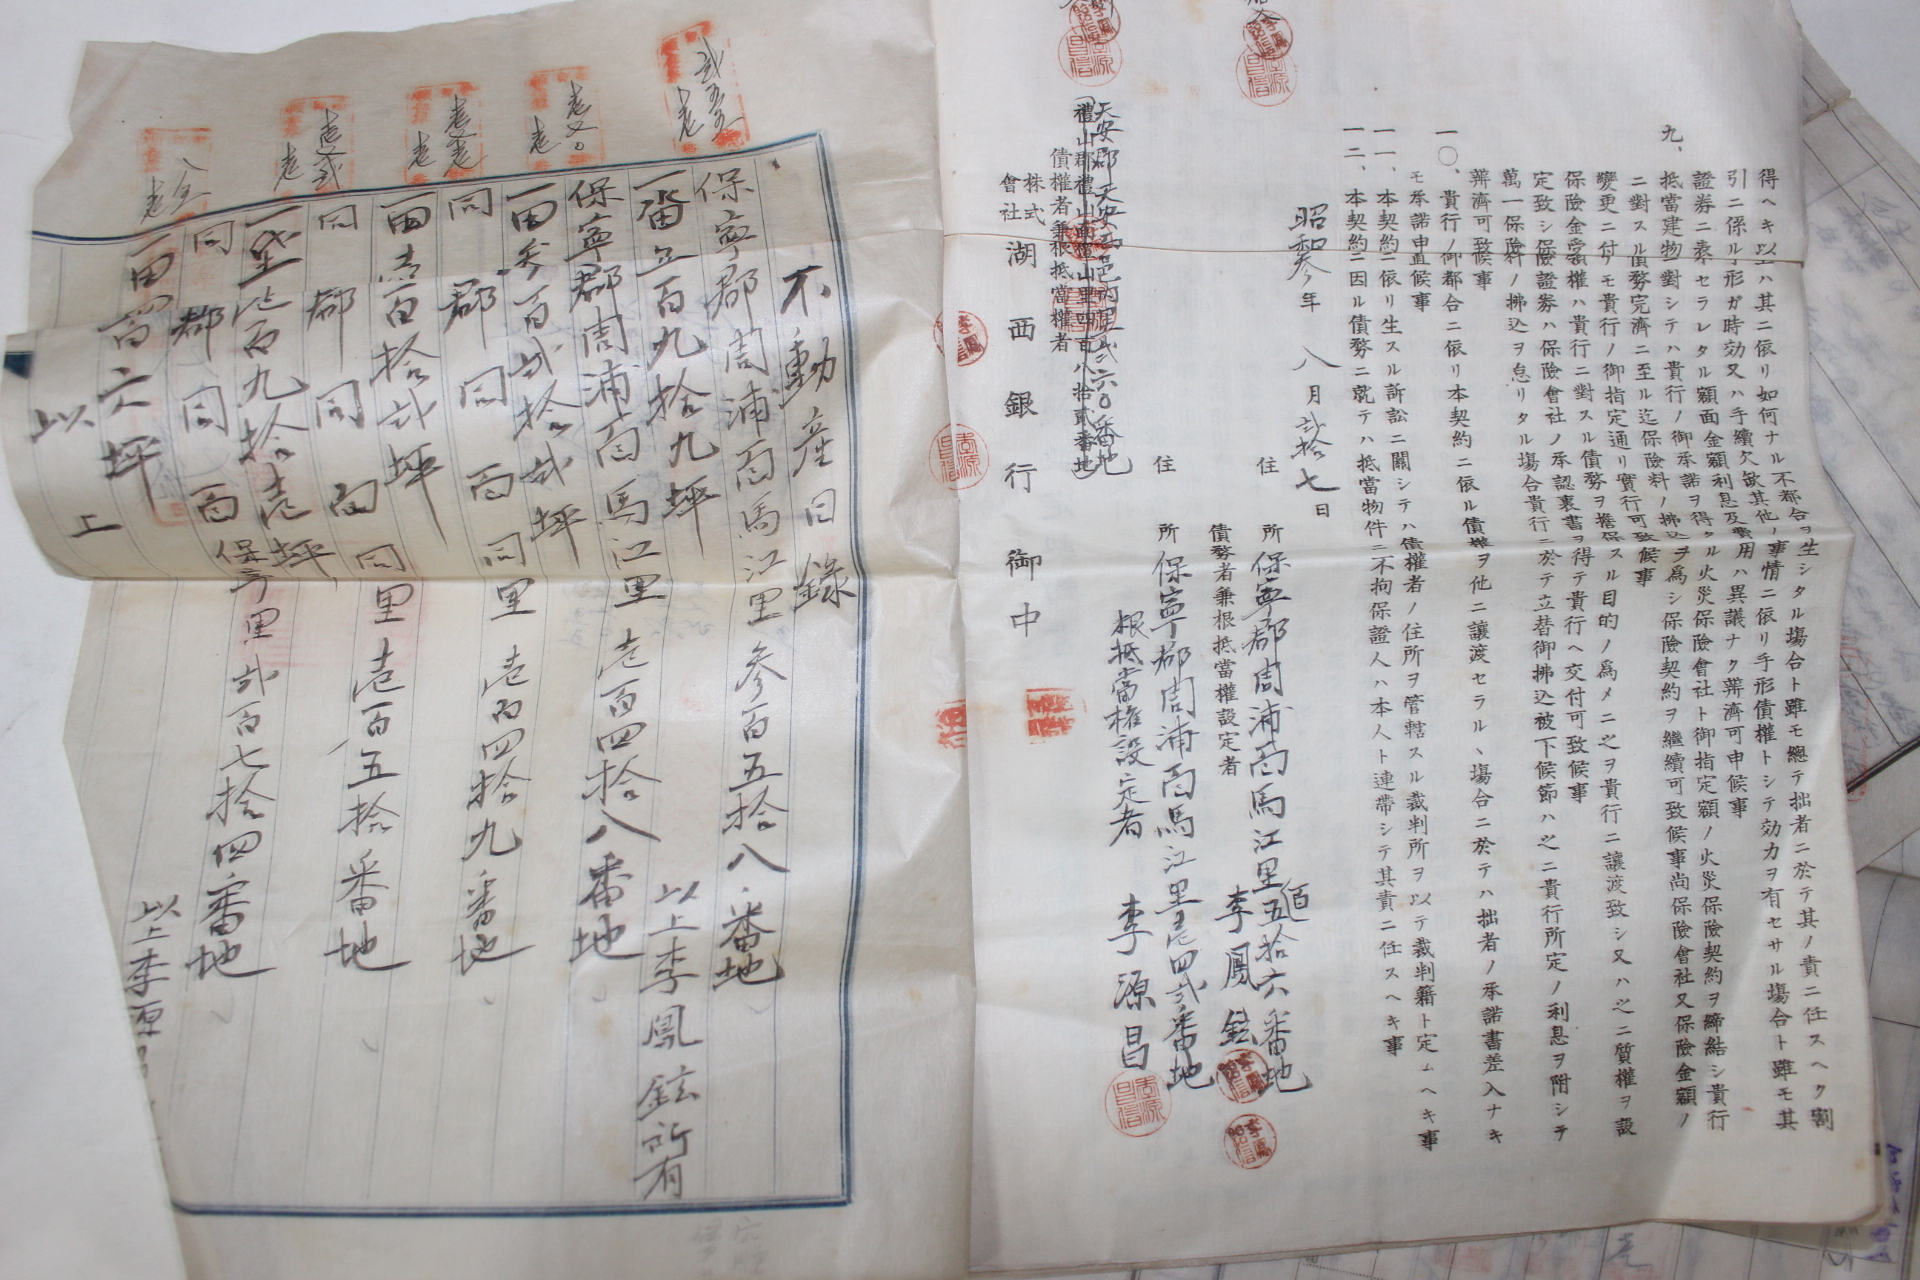 得ヘキ以上ハ其ニ依リ如何ナル不都合ヲ生シタル場合ト雖モ總テ拙者ニ於テ其ノ責ニ任スヘク割
引ニ係ル手形ガ時効又ハ手續欠欹其他ノ事情ニ依リ手形債權トシテ効力ヲ有セサル場合ト雖モ其
證券ニ表ハセラレタル額面金額利息及費用ハ異議ナク辨濟可申候事
九、抵當建物ニ對シテハ貴行ノ御承諾ヲ得タル火災保險會社ト御指定額ノ火災保險契約ヲ締結シ貴行
ニ對スル債務完濟ニ至ル迄保險料ノ拂込ヲ爲シ保險契約ヲ繼續可致候事尚保險會社又保險金額ノ
變更ニ付テモ貴行ノ御指定通リ實行可致候事
保險金受領權ハ貴行ニ對スル債務ヲ擔保スル目的ノ爲メニ之ヲ貴行ニ讓渡致シ又ハ之ニ質權ヲ設
定致シ保險證券ハ保險會社ノ承認裏書ヲ得テ貴行ヘ交付可致候事
萬一保險料ノ拂込ヲ怠リタル場合貴行ニ於テ立替御拂込被下候節ハ之ニ貴行所定ノ利息ヲ附シテ
辨濟可致候事
一〇、貴行ノ御都合ニ依リ本契約ニ依ル債權ヲ他ニ讓渡セラルヽ場合ニ於テハ拙者ノ承諾書差入ナキ
モ承諾申置候事
一一、本契約ニ依リ生スル訴訟ニ關シテハ債權者ノ住所ヲ管轄スル裁判所ヲ以テ裁判籍ト定ムヘキ事
一二、本契約ニ因ル債務ニ就テハ抵當物件ニ不拘保證人ハ本人ト連帶シテ其責ニ任スヘキ事
昭和參年八月貳拾七日
住所保寧郡周浦面馬江里百五拾六番地
債務者兼根抵當權設定者 李鳳鉉
住所保寧郡周浦面馬江里壱四弐番地
根抵當権設定者 李源昌
天安郡天安面邑內里弐六〇番地
禮山郡禮山面禮山里四百八拾貳番地
債權者兼根抵當權者
株式會社湖西銀行御中
不動産目錄
保寧郡周浦面馬江里參百五拾八番地
一畓五百九拾九坪
以上李鳳鉉所有
保寧郡周浦面馬江里壱百四拾八番地
一田參百弐拾弐坪
同郡同面同里壱百四拾九番地
一田壱百拾弐坪
同郡同面同里壱百五拾番地
一垈弐百九拾壱坪
同郡同面保寧里弐百七拾四番地
一田四百六坪
以上李源昌
以上